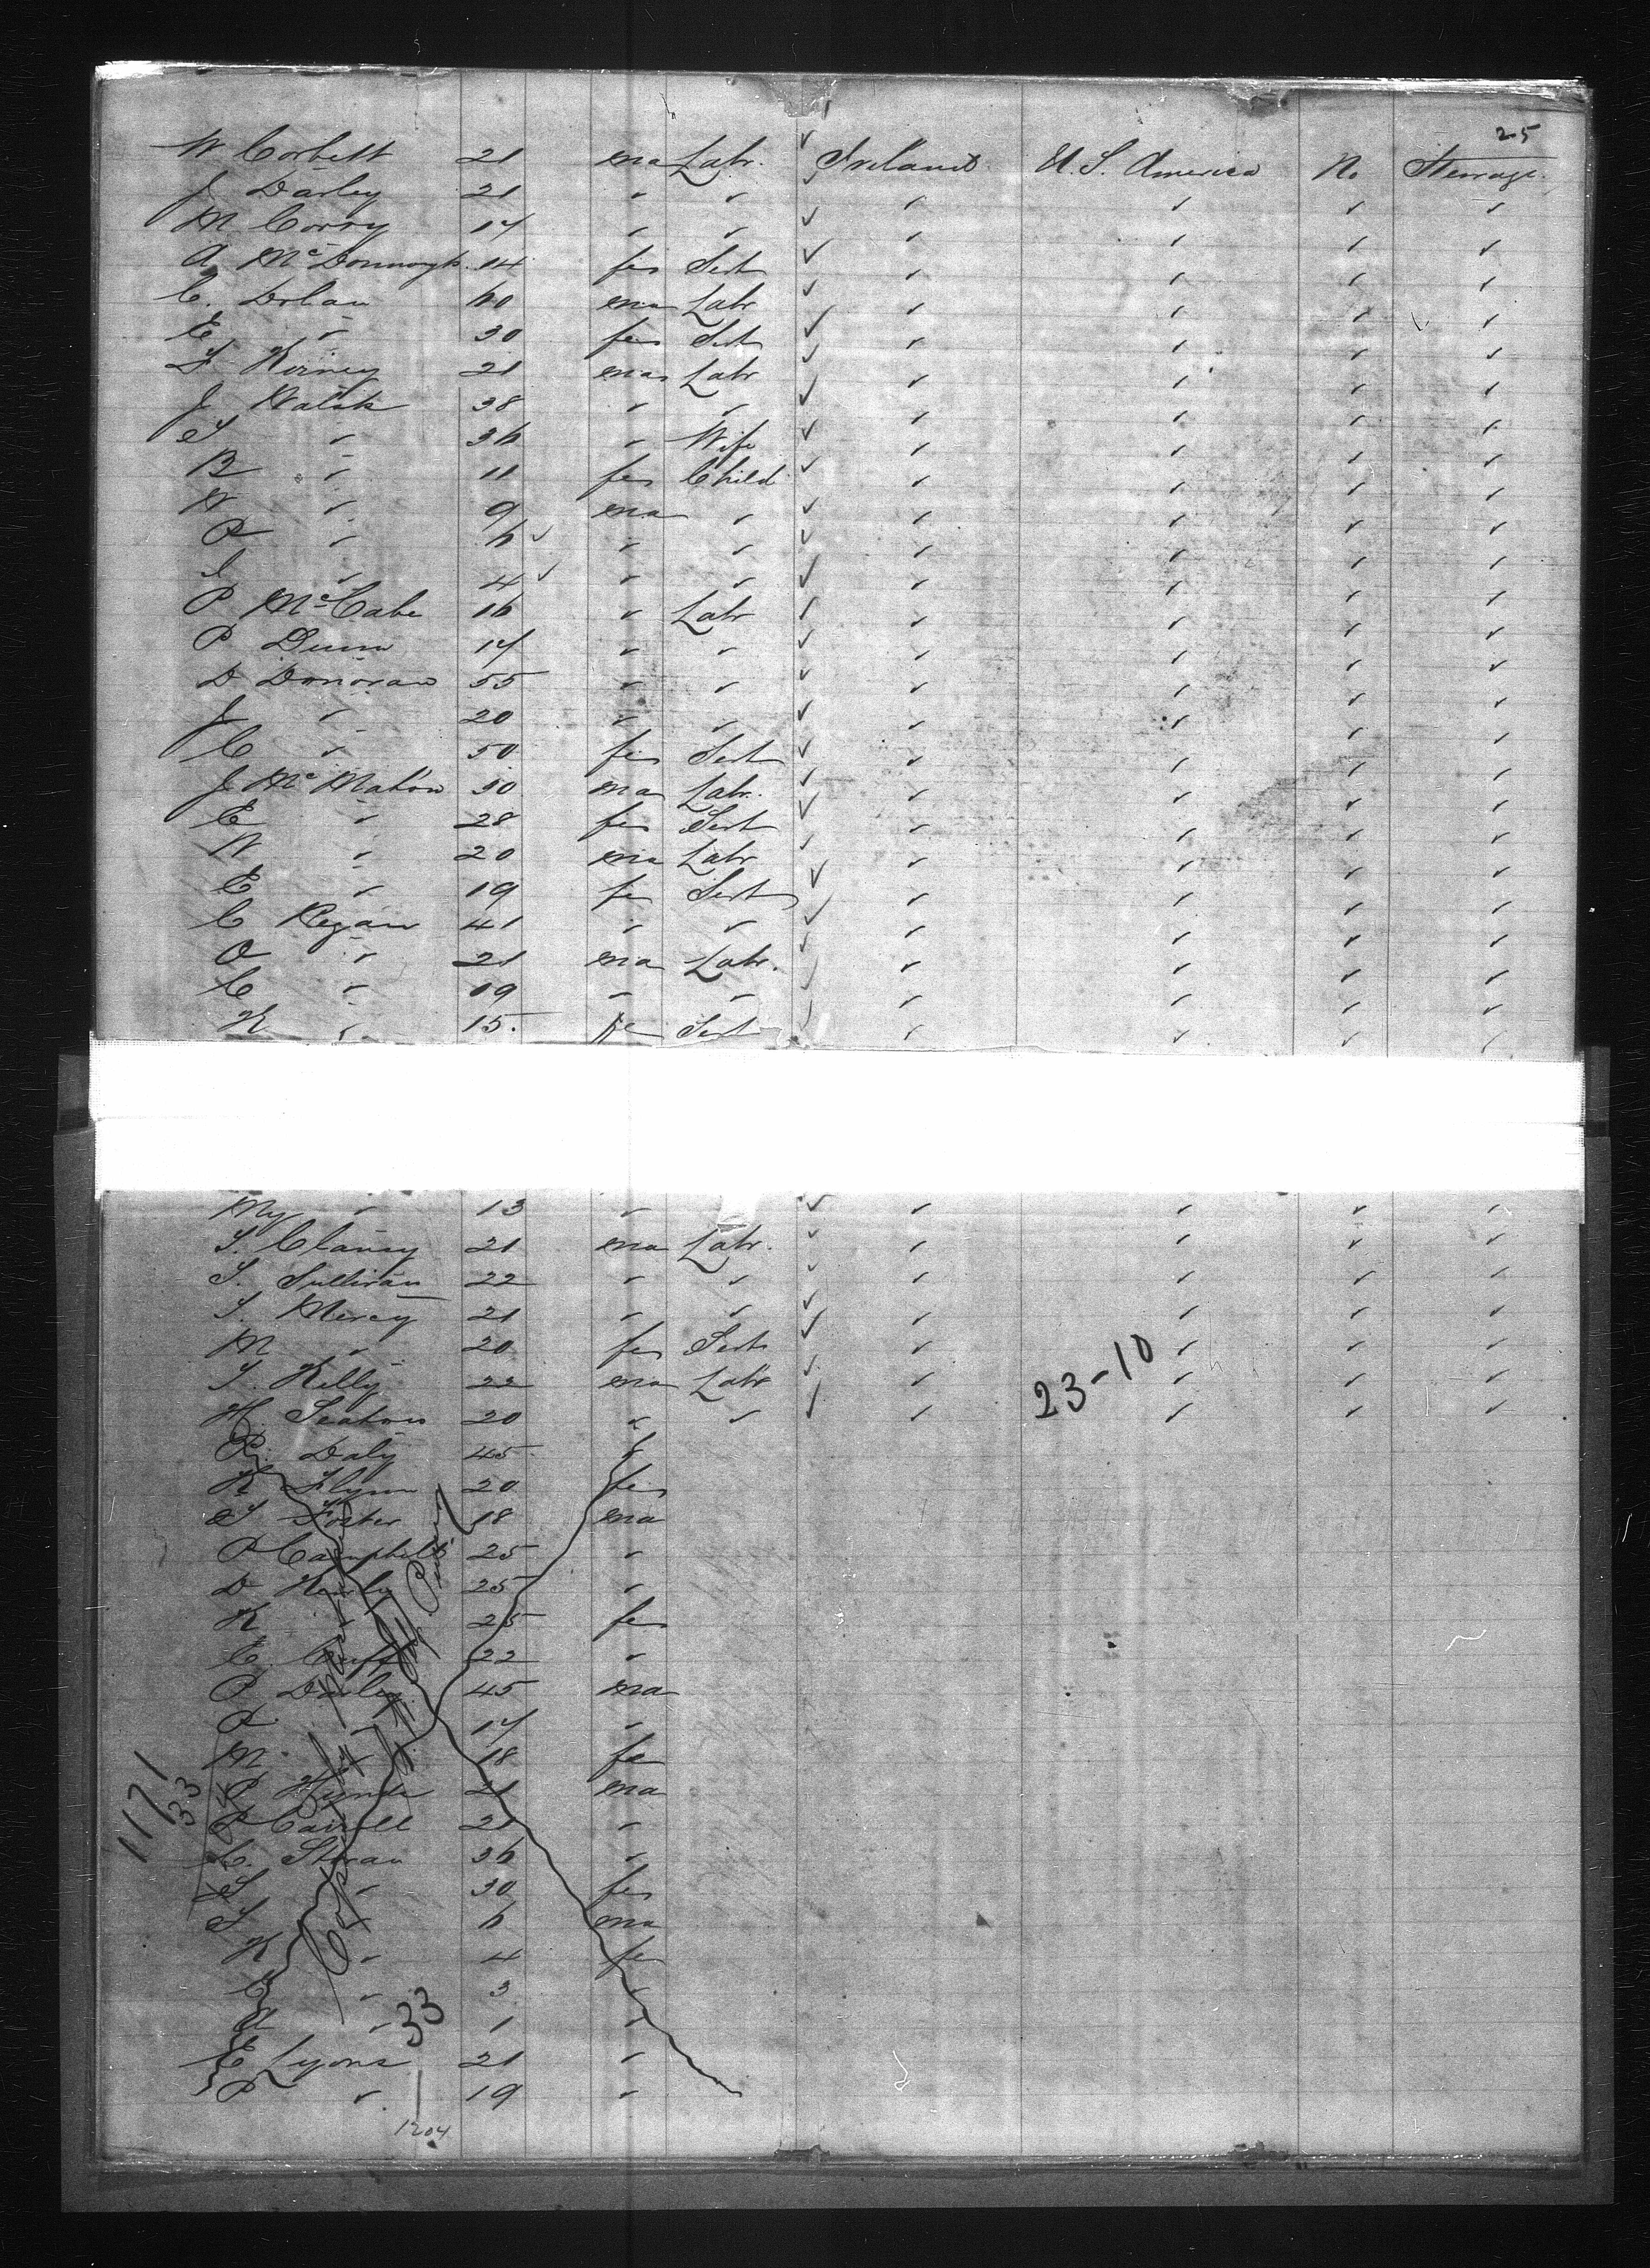 25
W Corbett 21 ma Labr. ✓ Ireland U. S. America No Steerage.
J Darley 21 " " ✓ " " " "
M Corry 17 " " ✓ " " " "
A McDonnogh 14 fe Sert ✓ " " " "
C. Dolan 60 ma Labr ✓ " " " "
E " 30 fe Sert ✓ " " " "
21 ma Labr ✓ " " " "
J Walsh 38 " " ✓ " " " "
S " 36 " Wife ✓ " " " "
B " 11 fe Child ✓ " " " "
W " 9 ma " ✓ " " " "
P " 6 ✓ " " ✓ " " " "
" 4 ✓ " " ✓ " " " "
P McCabe 16 " Labr ✓ " " " "
P Dunn 17 " " ✓ " " " "
D Donovan 55 " " ✓ " " " "
J " 20 " " ✓ " " " "
C " 50 fe Sert ✓ " " " "
J McMahon 30 ma Labr. ✓ " " " "
E " 28 fe Sert ✓ " " " "
W " 20 ma Labr ✓ " " " "
E " 19 fe Sert ✓ " " " "
C Regan 41 " " ✓ " " " "
O " 21 ma Labr. ✓ " " " "
C " 19 " " ✓ " " " "
K " 15. fe Sert ✓ " " " "
My " 13 " ✓ " " " "
T. Clancy 21 ma Labr. ✓ " " " "
T. Sullivan 22 " " ✓ " " " "
T. Mercy 21 " " ✓ " " " "
M " 20 fe Sert ✓ " " " "
T. Kelly 22 ma Labr ✓ " " " "
23-10
H. Seaton 20 " " ✓ " " " "
P. Daly 45 "
K Flynn 20 fe
T Foster 18 ma
P Campbell 25 "
D 25 "
K " 25 fe
C. Cuff 22 "
P Daley 45 ma
P " 17 "
M " 18 fe
1171
33
P Hynes 21 ma
P Carroll 21 "
C. 36 "
S " 30 fe
T " 6 ma
K " 4 fe
C " 3 "
A " 1 "
33
E Lyons 21 "
P " 19 "
1204